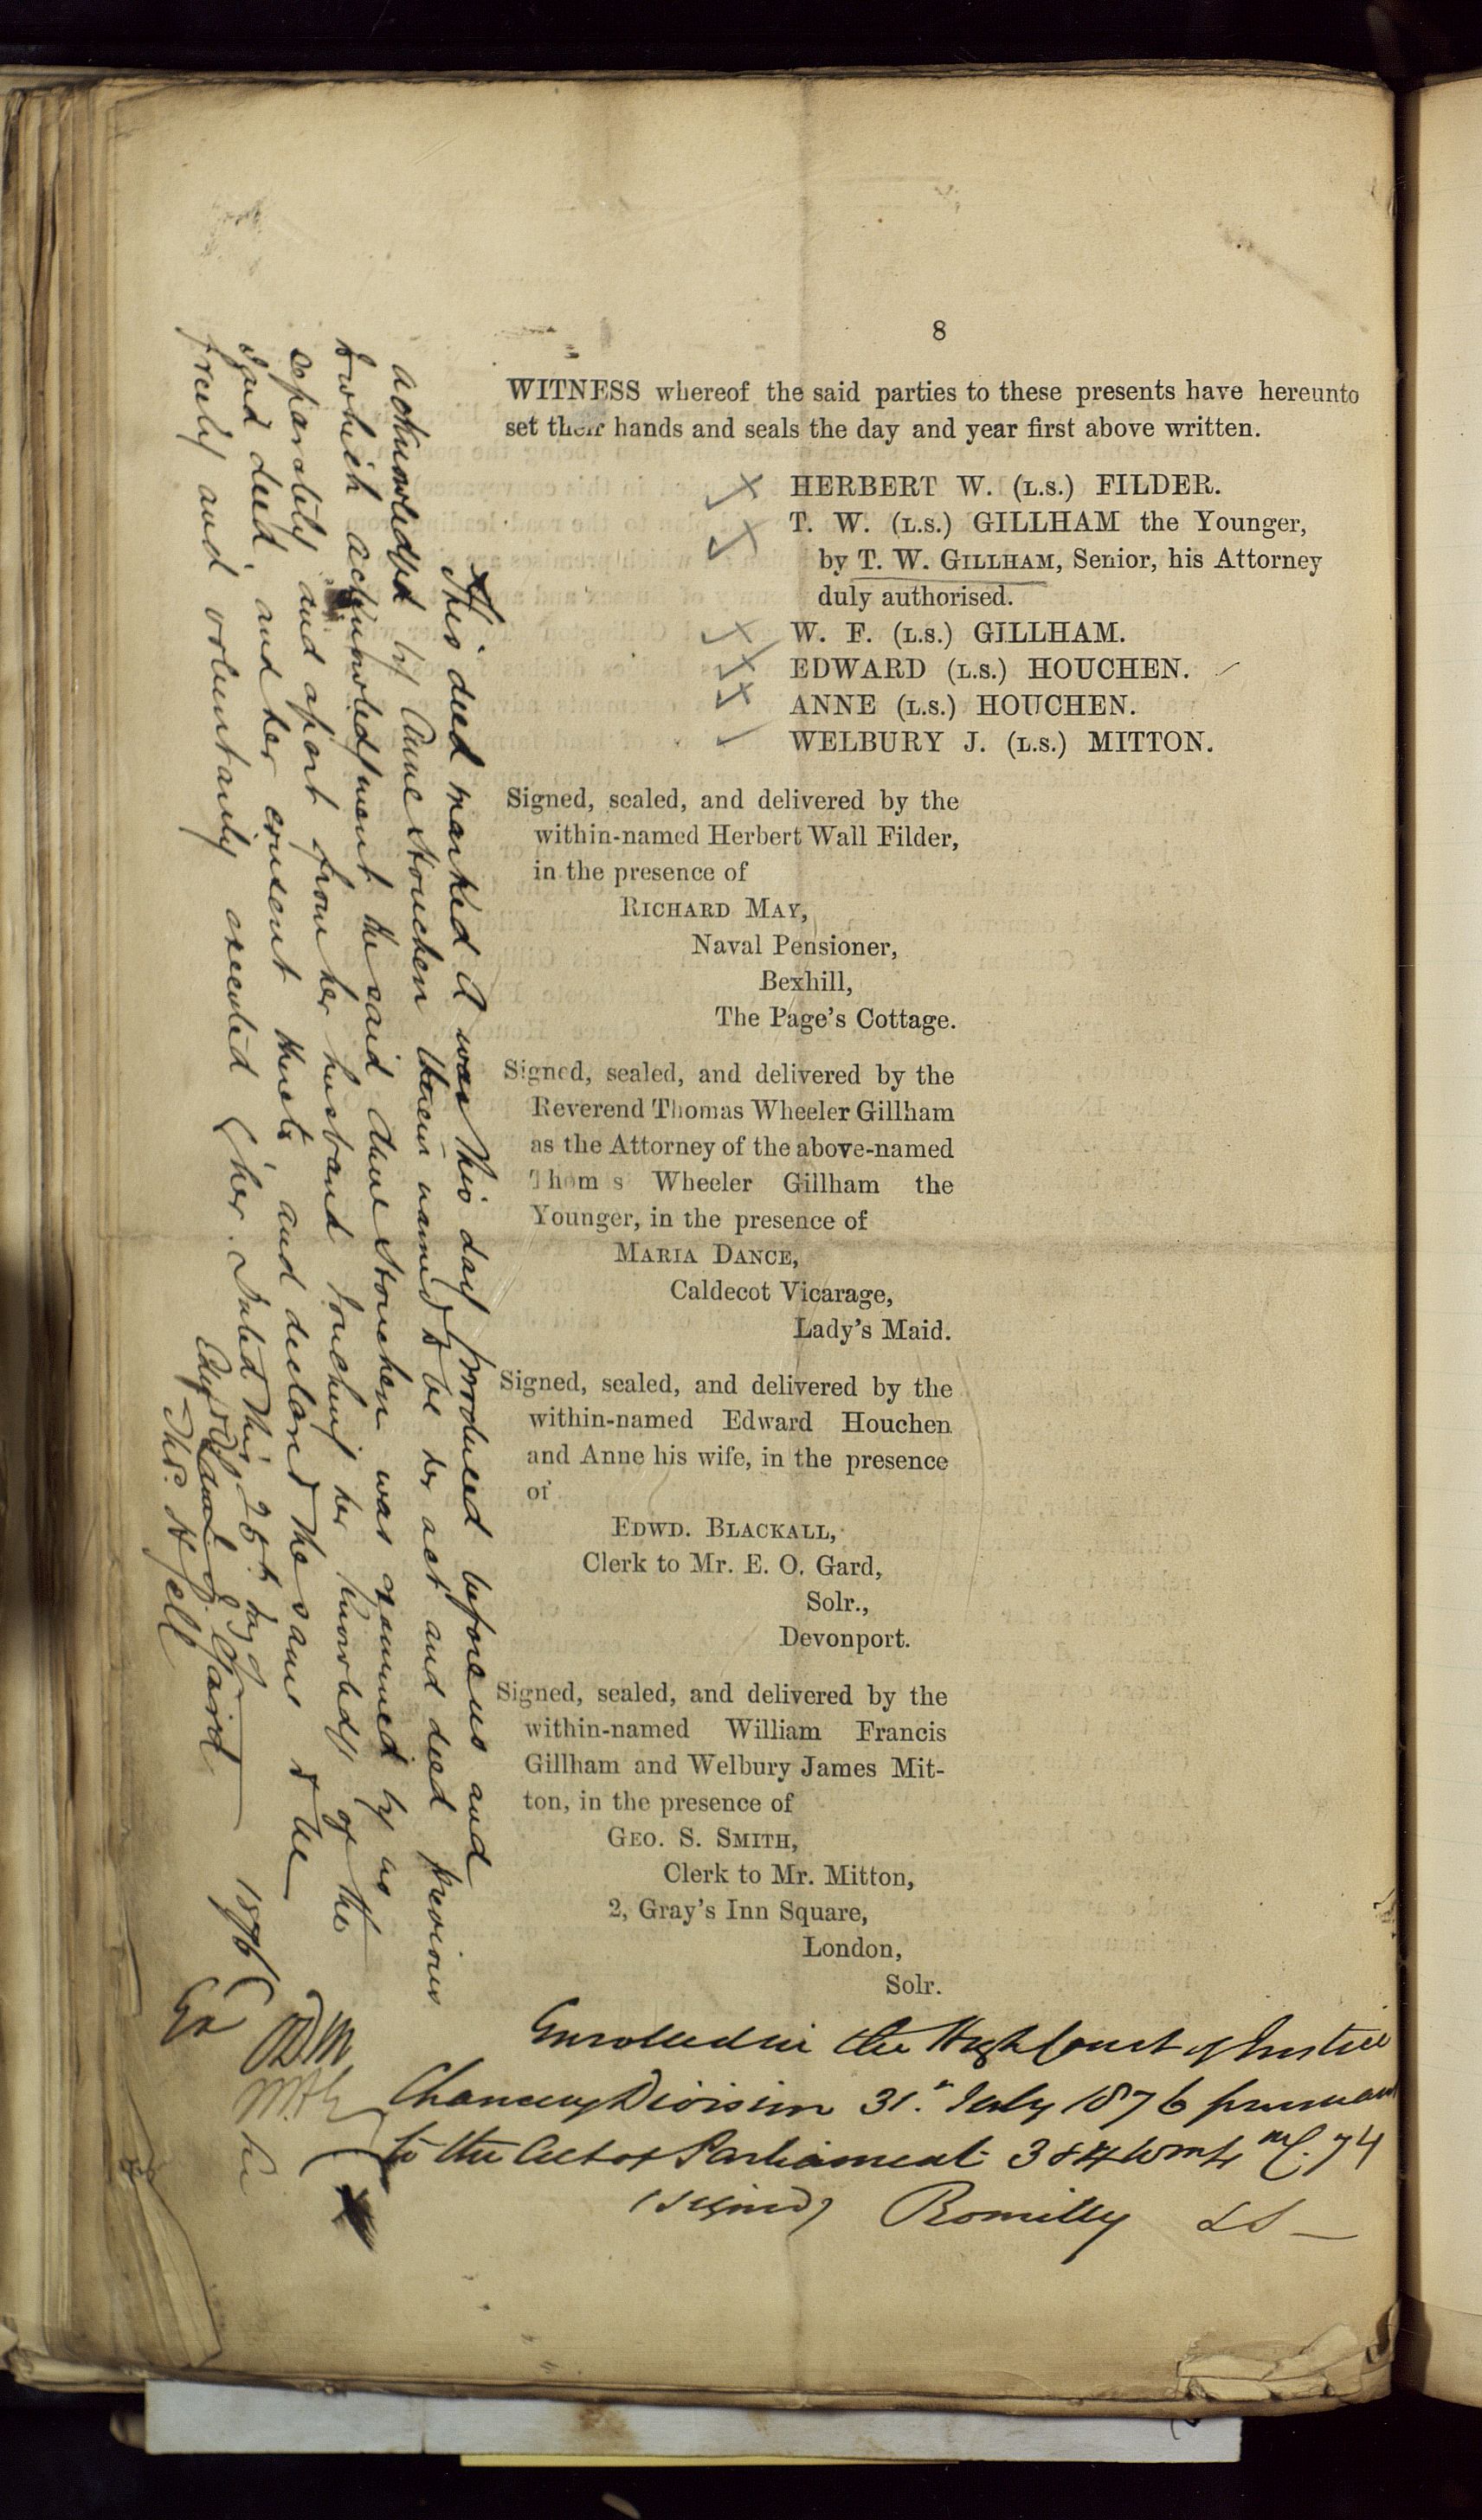 8
WITNESS whereof the said parties to these presents have hereunto
set their hands and seals the day and year first above written.
HERBERT W. (L.S.) FILDER.
T. W. (L.S.) GILLHAM the Younger,
by T. W. GILLHAM, Senior, his Attorney
duly authorised.
W. F. (L.S.) GILLHAM.
EDWARD (L.S.) HOUCHEN.
ANNE (L.S.) HOUCHEN.
WELBURY J. (L.S.) MITTON.
Signed, sealed, and delivered by the
within-named Herbert Wall Filder,
in the presence of
RICHARD MAY,
Naval Pensioner,
Bexhill,
The Page's Cottage.
Signed, sealed, and delivered by the
Reverend Thomas Wheeler Gillham
as the Attorney of the above-named
Thom s Wheeler Gillham the
Younger, in the presence of
MARIA DANCE,
Caldecot Vicarage,
Lady's Maid.
Signed, sealed, and delivered by the
within-named Edward Houchen
and Anne his wife, in the presence
of
EDWD. BLACKALL,
Clerk to Mr. E. O. Gard,
Solr.,
Devonport.
Signed, sealed, and delivered by the
within-named William Francis
Gillham and Welbury James Mit-
ton, in the presence of
GEO. S. SMITH,
Clerk to Mr. Mitton,
2, Gray's Inn Square,
London,
Solr.
This deed marked A was this day produced before us and
acknowledged by Anne Houchen therein named to be her act and deed previous
to which acknowledgment the said Anne Houchen was examined by us
separately and apart from her husband touching her knowledge of the
said deed and her consent thereto and declared the same to be
freely and voluntarily executed by her. Dated this 25th day of 1876
Gard
Thos.
Ex
Enrolled in the High Court of Justice
Chancery Division 31st July 1876 pursuant
to the Act of Parliament 3 & 4 Wm 4th C. 74
(signed) Romilly LS